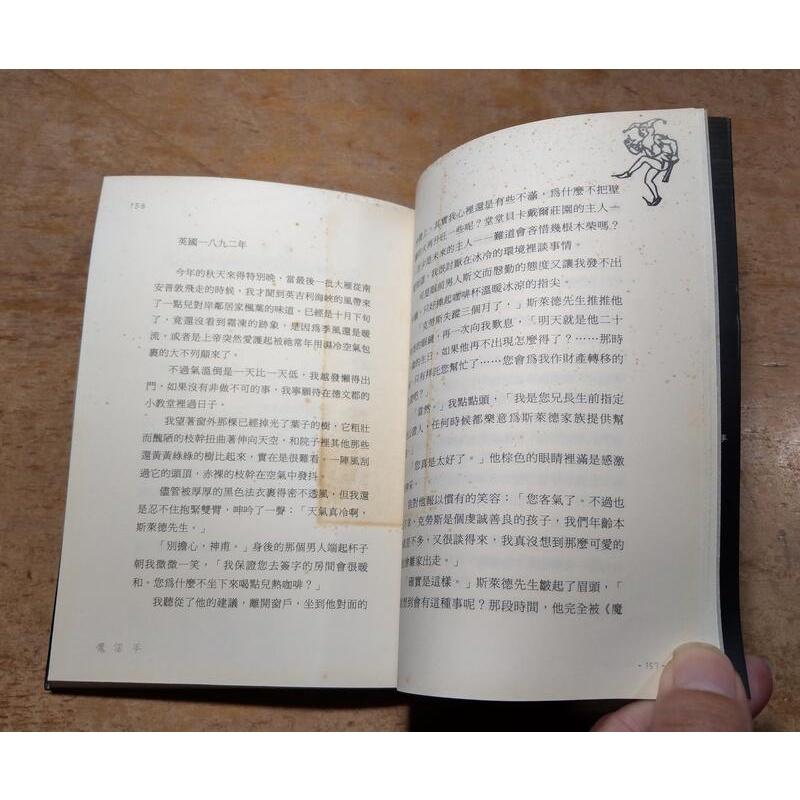 156
英國一八九二年
今年的秋天來得特別晚，當最後一批大雁從南
安普敦飛走的時候，我才聞到英吉利海峽的風帶來
了一點兒對岸鄰居家楓葉的味道。已經是十月下旬
了，竟還沒看到霜凍的跡象，是因為季風還是暖
流，或者是上帝突然愛護起被祂常年用濕冷空氣包
裹的大不列顛來了。
不過氣溫倒是一天比一天低，我越發懶得出
門，如果沒有非做不可的事，我寧願待在德文郡的
小教堂裡過日子。
我望著窗外那棵已經掉光了葉子的樹，它粗壯
而醜陋的枝幹扭曲著伸向天空，和院子裡其他那些
還黃黃綠綠的樹比起來，實在是很難看。一陣風刮
過它的頭頂，赤裸的枝幹在空氣中發抖。
儘管被厚厚的黑色法衣裹得密不透風，但我還
是忍不住抱緊雙臂，呻吟了一聲：「天氣真冷啊，
斯萊德先生。」
「別擔心，神甫。」身後的那個男人端起杯子
朝我微微一笑，「我保證您去簽字的房間會很暖
和。您為什麼不坐下來喝點兒熱咖啡？」
我聽從了他的建議，離開窗戶，坐到他對面的
魔笛手
上，其實我心裡還是有些不滿，為什麼不把壁
火再升旺一些呢？堂堂貝卡戴爾莊園的主人—
是未來的主人——難道會吝惜幾根木柴嗎？
，我既討厭在冰冷的環境裡談事情。
是眼前男人斯文而慇勤的態度又讓我發不出
，只好捧起咖啡杯溫暖冰涼的指尖。
「克勞斯失蹤三個月了，」斯萊德先生推推他
的眼鏡，再一次向我歎息，「明天就是他二十
的生日，如果他再不出現怎麼得了？……那時
，只有拜託您幫忙了……您會為我作財產轉移的
吧？」
「當然。」我點點頭，「我是您兄長生前指定
證人，任何時候都樂意為斯萊德家族提供幫
「您真是太好了。」他棕色的眼睛裡滿是感激
我對他報以慣有的笑容：「您客氣了。不過也
，克勞斯是個虔誠善良的孩子，我們年齡本
是不多，又很談得來，我真沒想到那麼可愛的
會離家出走。」
「確實是這樣。」斯萊德先生皺起了眉頭，「
想到會有這種事呢？那段時間，他完全被《魔
·157·